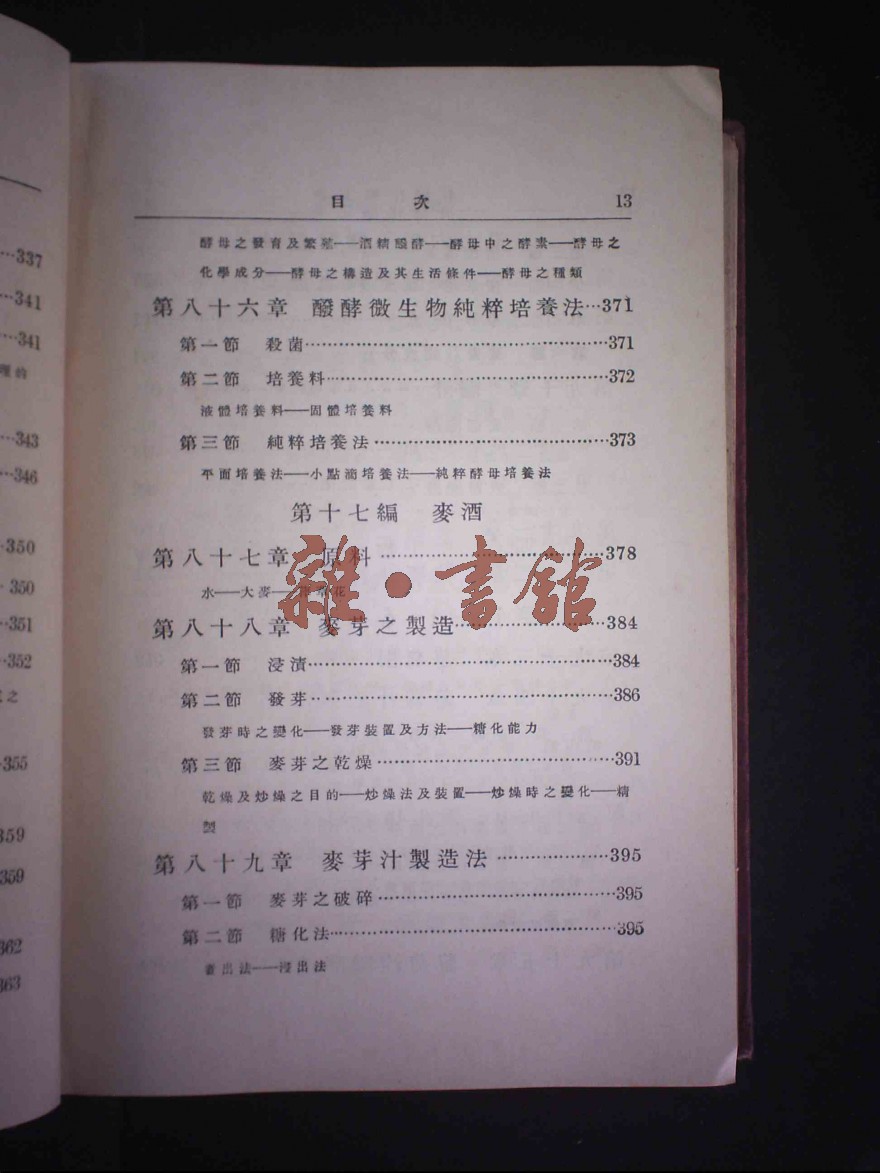 目 次 13
酵母之發育及繁殖——酒精醱酵——酵母中之酵素——酵母之
化學成分——酵母之構造及其生活條件——酵母之種類
第八十六章 醱酵微生物純粹培養法…371
第一節 殺菌…371
第二節 培養料…372
液體培養料——固體培養料
第三節 純粹培養法…373
平面培養法——小點滴培養法——純粹酵母培養法
第十七編 麥酒
第八十七章 原料…378
水——大麥——花
第八十八章 麥芽之製造…384
第一節 浸漬…384
第二節 發芽…386
發芽時之變化——發芽裝置及方法——糖化能力
第三節 麥芽之乾燥…391
乾燥及炒燥之目的——炒燥法及裝置——炒燥時之變化——精
製
第八十九章 麥芽汁製造法…395
第一節 麥芽之破碎…395
第二節 糖化法…395
煮出法——浸出法
雜·書館
…337
…341
…341
理的
…343
…346
…350
350
…351
…352
之
355
359
359
362
363